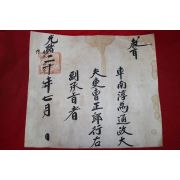 敎旨
車南淳爲通政大
夫吏曹正郎行右
副承旨者
光緖二十年七月 日